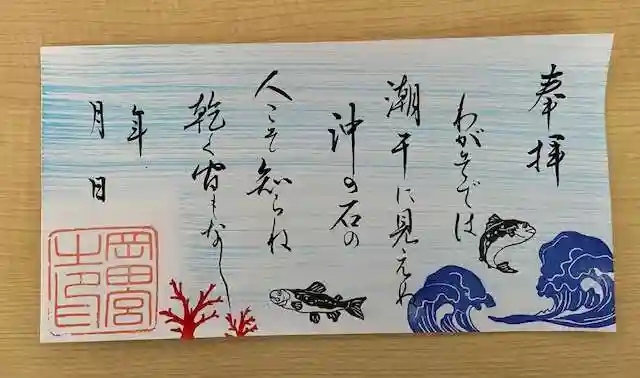 奉拝
わがそでは
潮干に見えぬ
沖の石の
人こそ知らね
乾く間もなし
年
月 日
岡田宮